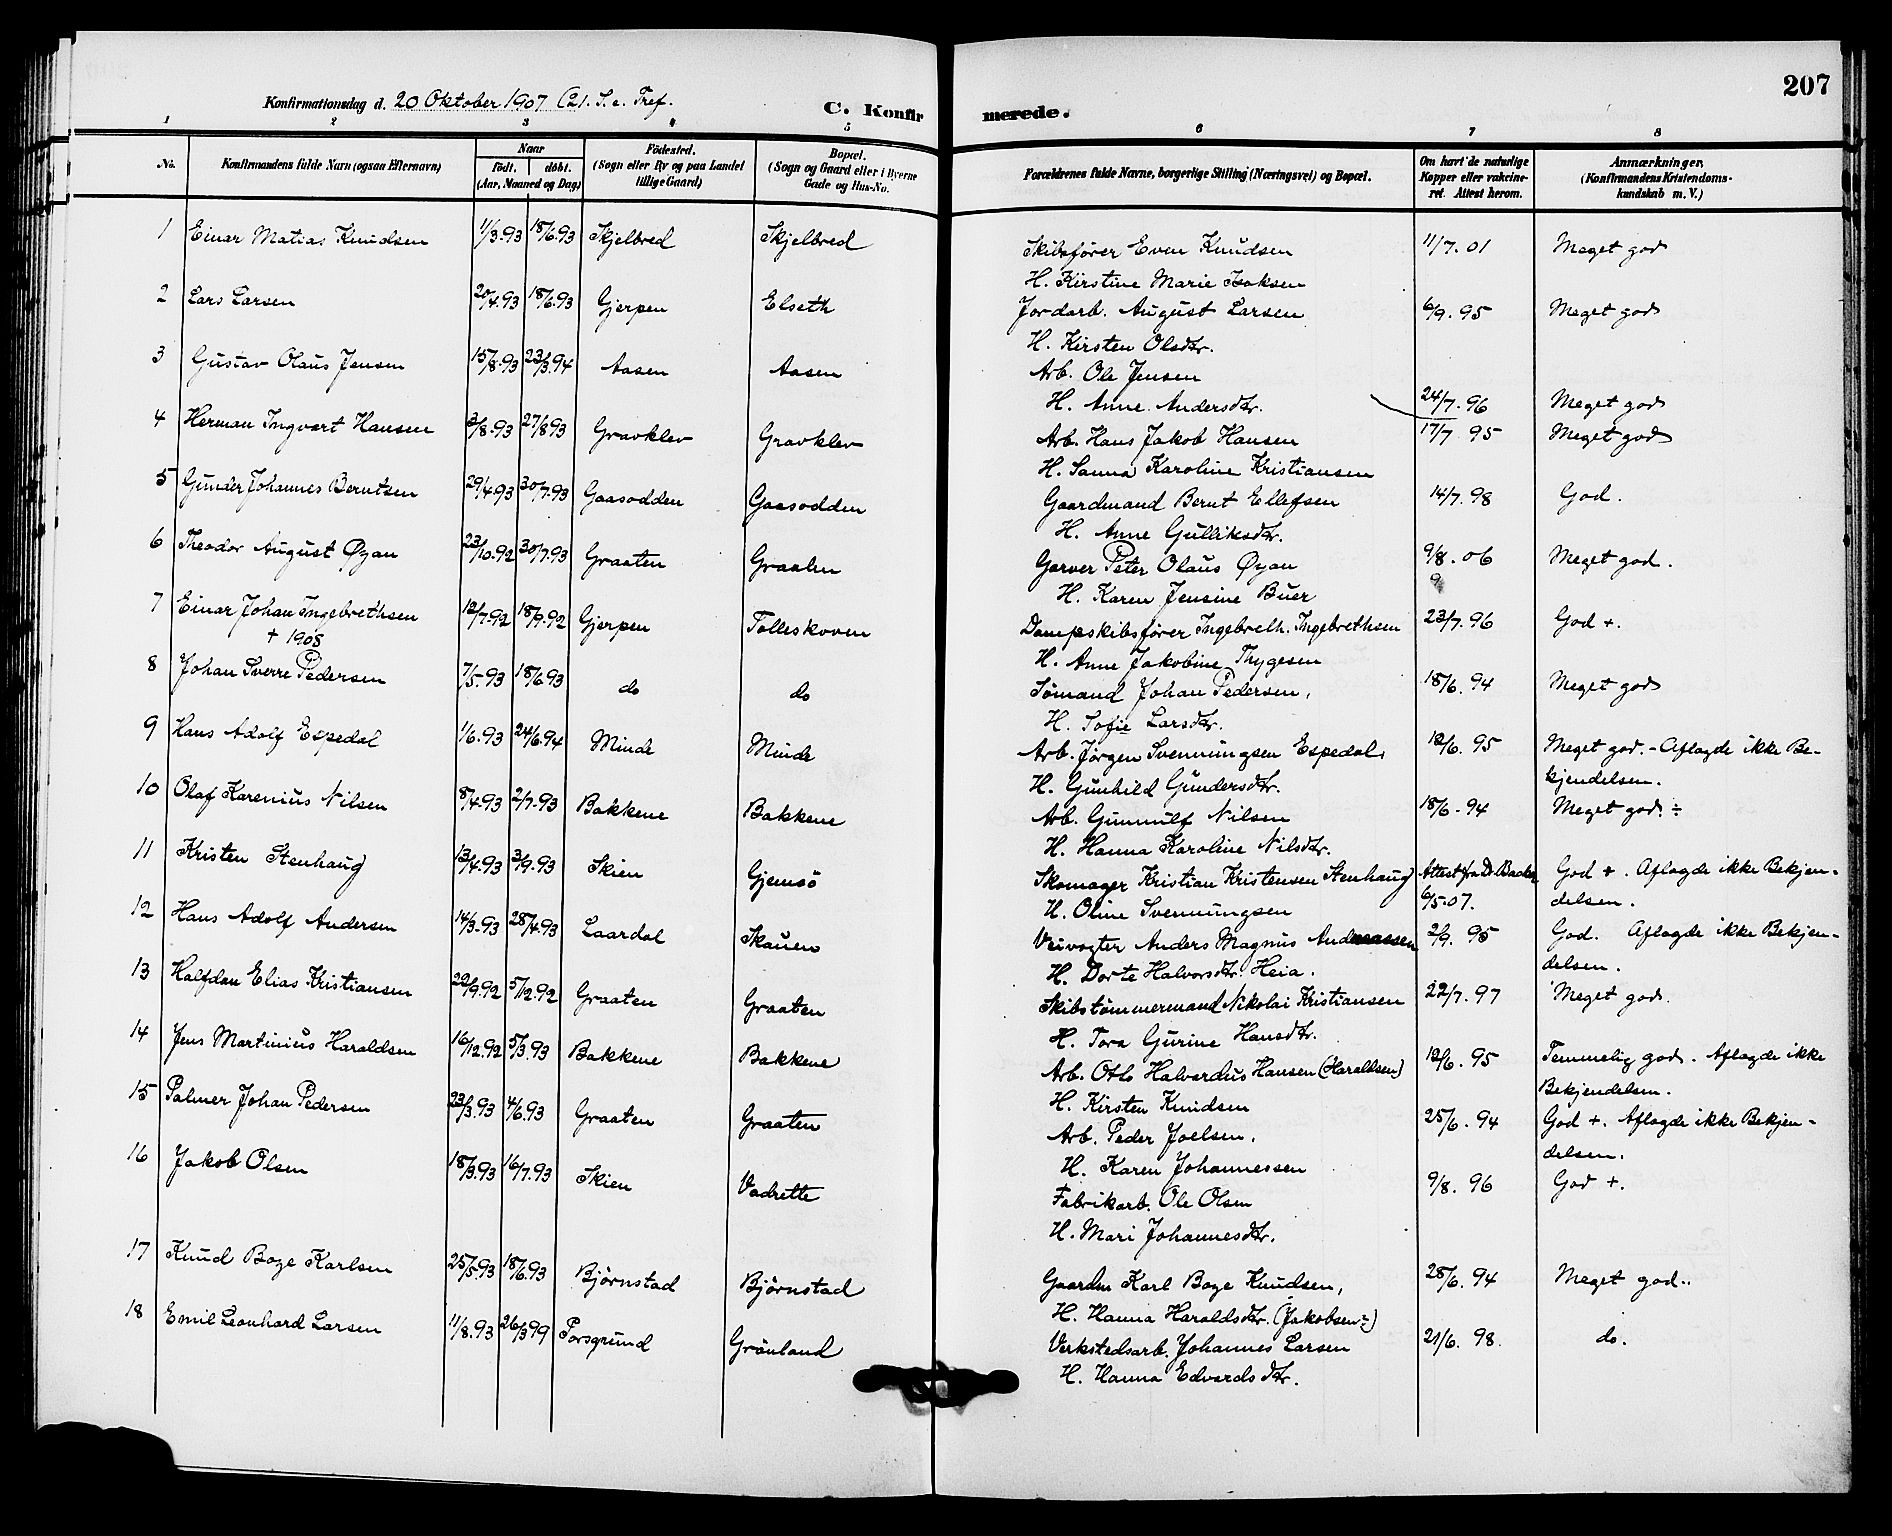 207
Konfirmationsdag d. 20 Oktober 1907 (21. S. e. Tref.
C. Konfirmerede.
1 2 3 4 5 6 7 8
No.
Konfirmandens fulde Navn (ogsaa Efternavn)
Naar
født. døbt.
(Aar, Maaned og Dag)
Fødested.
(Sogn eller By og paa Landet
tillige Gaard)
Bopæl.
(Sogn og Gaard eller i Byerne
Gade og Hus-No.
Forældrenes fulde Navne, borgerlige Stilling (Næringsvei) og Bopæl.
Om havt de naturlige
Kopper eller vakcine-
ret. Attest herom.
Anmærkninger,
(Konfirmandens Kristendoms-
kundskab m. V.)
1 Einar Matias Knudsen 11/3.93 18/6.93 Skjelbred Skjelbred Skibsfører Even Knudsen 11/7.01 Meget god
H. Kirstine Marie Isaksen
2 Lars Larsen 20/4.93 18/6.93 Gjerpen Elseth Jordarb. August Larsen 6/9.95 Meget god
H. Kirsten Olsdtr.
3 Gustav Olaus Jensen 15/8.93 23/3.94 Aasen Aasen Arb. Ole Jensen
H. Anne Andersdtr. 24/7.96 Meget god
4 Herman Ingvart Hansen 3/8.93 27/8 93 Gravklev Gravklev Arb. Hans Jakob Hansen 17/7 95 Meget god
H. Sanna Karoline Kristiansen
5 Gunder Johannes Berntsen 29/4.93 30/7.93 Gaasodden Gaasodden Gaardmand Bernt Ellefsen 14/7.98 God.
H. Anne Gulliksdtr.
6 Theodor August Øyan 23/10.92 30/7.93 Graaten Graaten Garver Peter Olaus Øyan 9/8.06 Meget god.
H. Karen Jensine Buer
7 Einar Johan Ingebrethsen 12/7.92 18/9.92 Gjerpen Tolleskoven Dampskibsfører Ingebreth. Ingebrethsen 23/7.96 God +.
+ 1908
H. Anne Jakobine Thygesen
8 Johan Sverre Pedersen 7/5.93 18/6.93 do do Sømand Johan Pedersen, 18/6.94 Meget god
H. Sofie Larsdtr.
9 Hans Adolf Espedal 1/6.93 24/6.94 Minde Minde Arb. Jørgen Svennungsen Espedal. 12/6.95 Meget god. - Aflagde ikke Be-
H. Gunhild Gundersdtr. kjendelsen.
10 Olaf Karenius Nilsen 8/4.93 2/7.93 Bakkene Bakkene Arb. Gunnulf Nilsen 18/6.94 Meget god. ÷
H. Hanna Karoline Nilsdtr.
11 Kristen Stenhaug 13/4.93 3/9.93 Skien Gjemsö Skomager Kristian Kristensen Stenhaug Attest fra Dr. Backer God +. Aflagde ikke Bekjen-
H. Oline Svennungsen 6/5.07. delsen.
12 Hans Adolf Andersen 14/3.93 28/4.93 Laardal Skauen Veivogter Anders Magnus Andreassen 2/9.95 God. Aflagde ikke Bekjen-
H. Dorte Halvorsdtr. Heia. delsen.
13 Halfdan Elias Kristiansen 22/9.92 5/12.92 Graaten Graaten Skibstømmermand Nikolai Kristiansen 22/7.97 Meget god.
H. Tora Gurine Hansdtr.
14 Jens Martinius Haraldsen 16/12.92 5/3.93 Bakkene Bakkene Arb. Otto Halvardus Hansen (Haraldsen) 12/6.95 Temmelig god. Aflagde ikke
H. Kirsten Knudsen Bekjendelsen.
15 Palmer Johan Pedersen 23/3.93 4/6.93 Graaten Graaten Arb. Peder Joelsen. 25/6.94 God +. Aflagde ikke Bekjen-
H. Karen Johannessen delsen.
16 Jakob Olsen 18/3.93 16/7.93 Skien Vadrette Fabrikarb. Ole Olsen 9/8.96 God +.
H. Mari Johannesdtr.
17 Knud Boge Karlsen 25/5.93 18/6.93 Bjørnstad Bjørnstad Gaardm Karl Boge Knudsen, 28/6.94 Meget god..
H. Hanna Haraldsdtr. (Jakobsen)
18 Emil Leonhard Larsen 11/8.93 26/3 99 Porsgrund Grønland Verkstedsarb. Johannes Larsen 21/6.98. do.
H. Hanna Edvardsdtr.